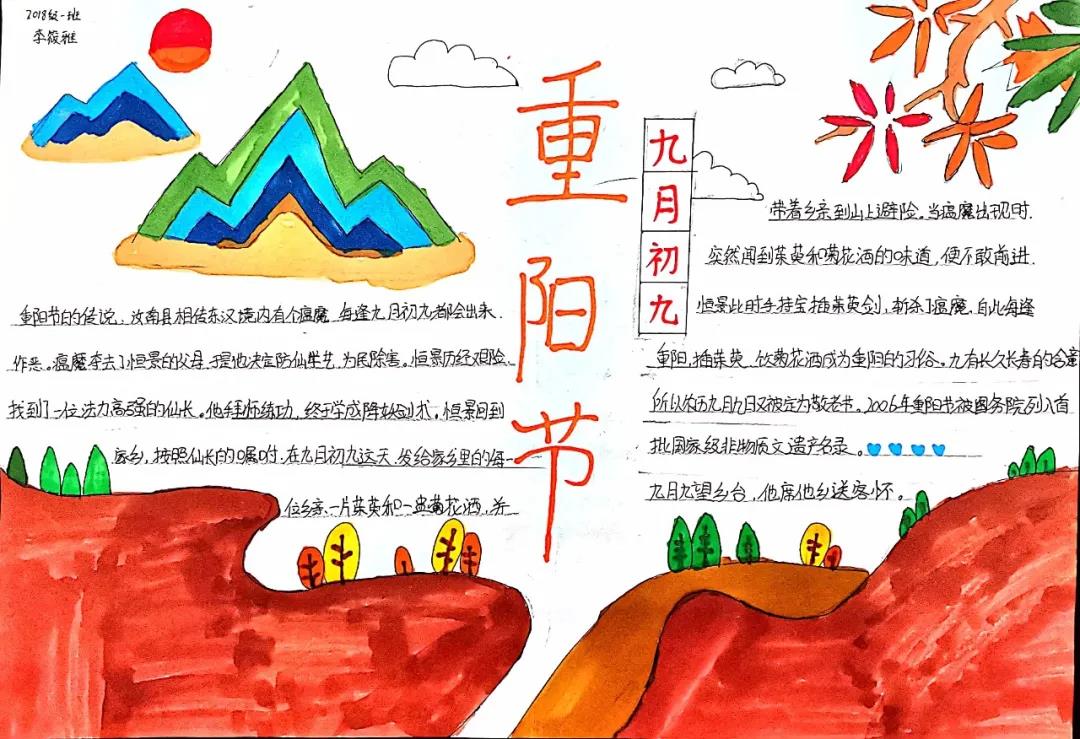 2018级一班
李筱雅
重阳节
九月初九
重阳节的传说，汝南县相传东汉境内有个瘟魔 每逢九月初九都会出来
作恶。瘟魔夺去了恒景的父母，于是他决定防仙学艺，为民除害。恒景历经艰险、
找到了一位法力高强的仙长。他拜师练功，终于学成降妖之术，恒景回到
家乡，按照仙长的嘱咐，在九月初九这天，发给家乡里的每一
位乡亲、一片茱萸和一盅菊花酒，并
带着乡亲到山上避险。当瘟魔出现时.
突然闻到茱萸和菊花酒的味道，便不敢前进.
恒景此时手持宝插茱萸剑，斩杀了瘟魔，自此每逢
重阳，插茱萸，饮菊花酒成为重阳的习俗。九有长久长寿的含意
所以农历九月九日又被定为敬老节。2006年重阳节被国务院列入首
批国家级非物质文遗产名录。
九月九望乡台，他席他乡送客怀。